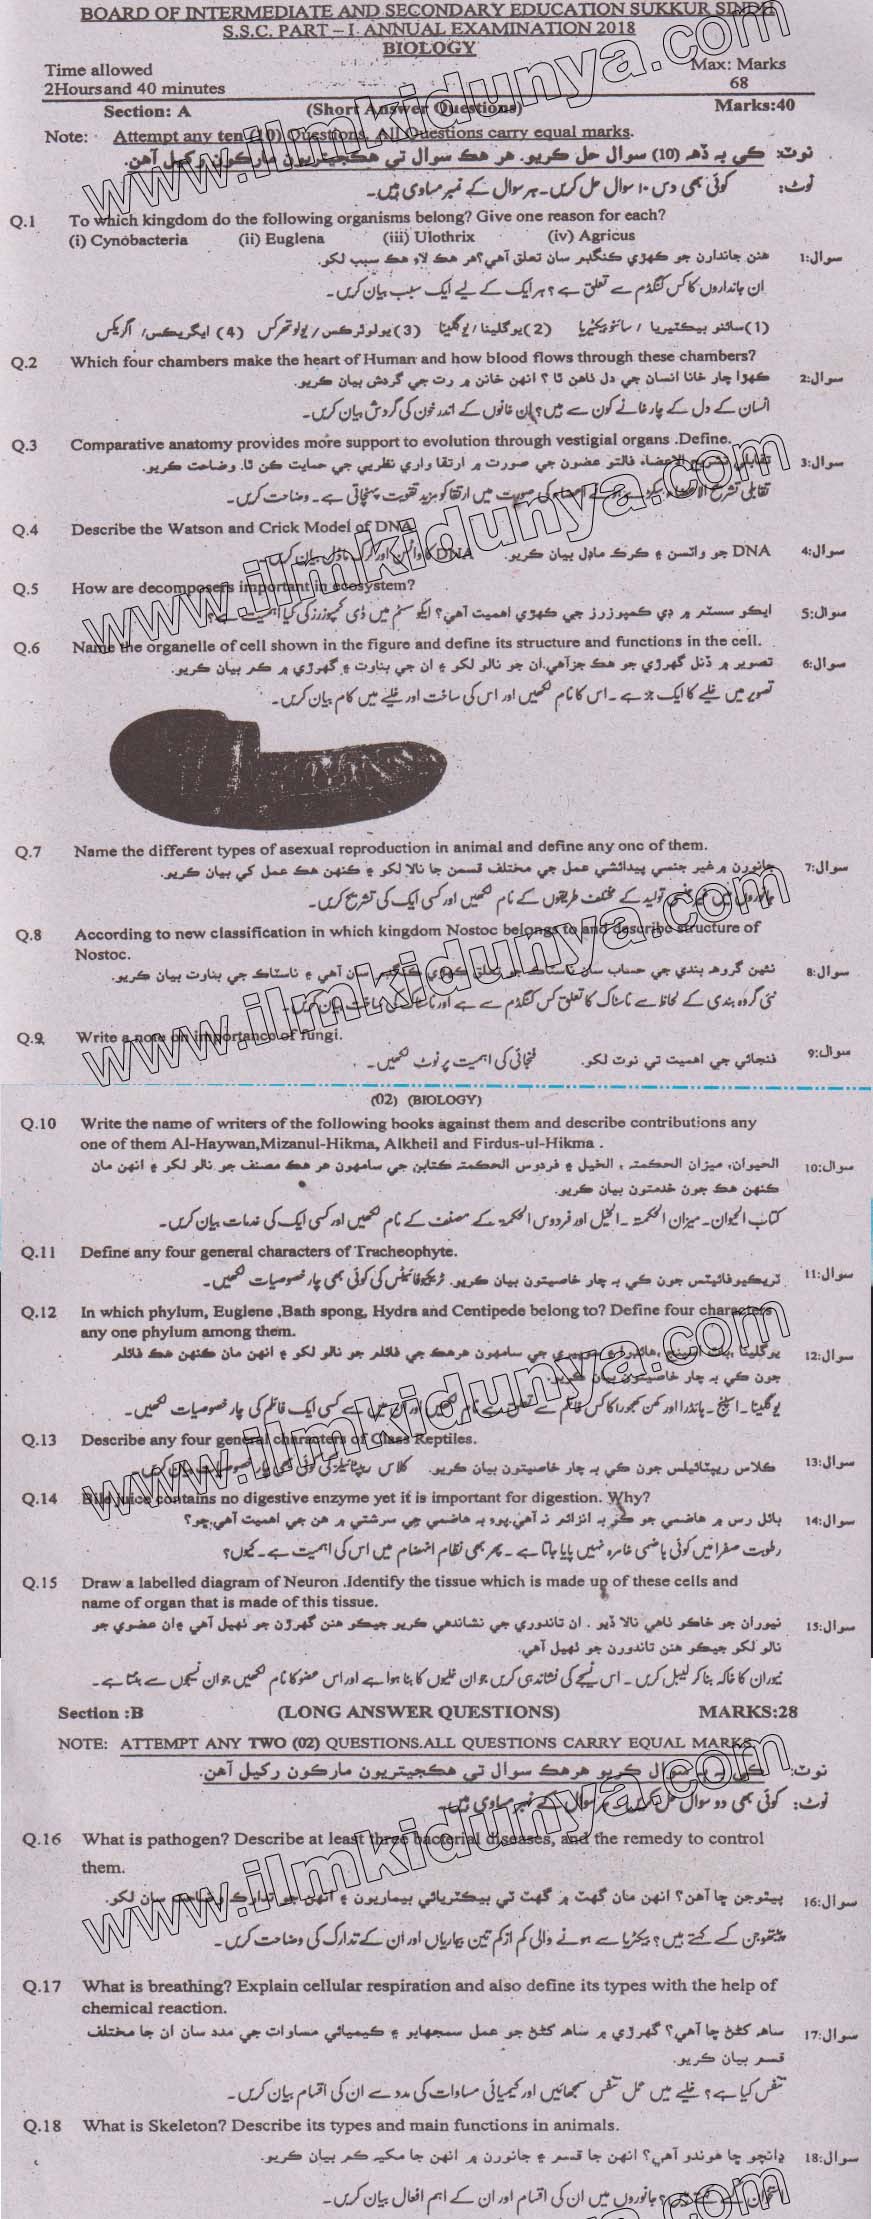 BOARD OF INTERMEDIATE AND SECONDARY EDUCATION SUKKUR SINDH
S.S.C. PART – I. ANNUAL EXAMINATION 2018
BIOLOGY
Time allowed Max: Marks
2Hoursand 40 minutes 68
Section: A (Short Answer Questions) Marks:40
Note: Attempt any ten (10) Questions. All Questions carry equal marks.
نوٽ: ڪي به ڏهه (10) سوال حل ڪريو. هر هڪ سوال تي هڪجيتريون مارڪون رکيل آهن.
نوٹ: کوئی بھی دس ۱۰ سوال حل کریں۔ ہر سوال کے نمبر مساوی ہیں۔
Q.1 To which kingdom do the following organisms belong? Give one reason for each?
(i) Cynobacteria (ii) Euglena (iii) Ulothrix (iv) Agricus
سوال:1 هنن جاندارن جو ڪهڙي ڪنگڊم سان تعلق آهي؟ هر هڪ لاءِ هڪ سبب لکو.
ان جانداروں کا کس کنگڈم سے تعلق ہے؟ ہر ایک کے لیے ایک سبب بیان کریں۔
(1) سائنو بيڪٽيريا / سائنو بیکٹیریا (2) يوگلينا/ یوگلینا (3) يولوٿرڪس/ یولوتھرکس (4) ايگريڪس/ اگریکس
Q.2 Which four chambers make the heart of Human and how blood flows through these chambers?
سوال:2 ڪهڙا چار خانا انسان جي دل ٺاهن ٿا؟ انهن خانن ۾ رت جي گردش بيان ڪريو.
انسان کے دل کے چار خانے کون سے ہیں؟ ان خانوں کے اندر خون کی گردش بیان کریں۔
Q.3 Comparative anatomy provides more support to evolution through vestigial organs .Define.
سوال:3 تقابلي تشريح الاعضاء فالتو عضون جي صورت ۾ ارتقا واري نظريي جي حمايت ڪن ٿا. وضاحت ڪريو.
تقابلی تشریح الاعضاء کی صورت میں ارتقا کو مزید تقویت پہنچاتی ہے۔ وضاحت کریں۔
Q.4 Describe the Watson and Crick Model of DNA
سوال:4 DNA جو واٽسن ۽ ڪرڪ ماڊل بيان ڪريو. DNA کا واٹسن اور کرک ماڈل بیان کریں۔
Q.5 How are decomposers important in ecosystem?
سوال:5 ايڪو سسٽم ۾ ڊي ڪمپوزرز جي ڪهڙي اهميت آهي؟ ایکو سسٹم میں ڈی کمپوزرز کی کیا اہمیت ہے؟
Q.6 Name the organelle of cell shown in the figure and define its structure and functions in the cell.
سوال:6 تصوير ۾ ڏنل گهرڙي جو هڪ جز آهي. ان جو نالو لکو ۽ ان جي بناوت ۽ گهرڙي ۾ ڪم بيان ڪريو.
تصویر میں خلیے کا ایک جز ہے۔ اس کا نام لکھیں اور اس کی ساخت اور خلیے میں کام بیان کریں۔
Q.7 Name the different types of asexual reproduction in animal and define any one of them.
سوال:7 جانورن ۾ غير جنسي پيدائشي عمل جي مختلف قسمن جا نالا لکو ۽ ڪنهن هڪ عمل کي بيان ڪريو.
جانوروں میں غیر جنسی تولید کے مختلف طریقوں کے نام لکھیں اور کسی ایک کی تشریح کریں۔
Q.8 According to new classification in which kingdom Nostoc belongs to and describe structure of
Nostoc.
سوال:8 نئين گروهه بندي جي حساب سان ناسٽاڪ جو تعلق ڪهڙي ڪنگڊم سان آهي ۽ ناسٽاڪ جي بناوت بيان ڪريو.
نئی گروہ بندی کے لحاظ سے ناسٹاک کا تعلق کس کنگڈم سے ہے اور ناسٹاک کی ساخت بیان کریں۔
Q.9 Write a note on importance of fungi.
سوال:9 فنجائي جي اهميت تي نوٽ لکو. فنجائی کی اہمیت پر نوٹ لکھیں۔
(02) (BIOLOGY)
Q.10 Write the name of writers of the following books against them and describe contributions any
one of them Al-Haywan,Mizanul-Hikma, Alkheil and Firdus-ul-Hikma .
سوال:10 الحيوان، ميزان الحڪمته، الخيل ۽ فردوس الحڪمته ڪتابن جي سامهون هر هڪ مصنف جو نالو لکو ۽ انهن مان
ڪنهن هڪ جون خدمتون بيان ڪريو.
کتاب الحیوان۔ میزان الحکمتہ۔ الخیل اور فردوس الحکمتہ کے مصنف کے نام لکھیں اور کسی ایک کی خدمات بیان کریں۔
Q.11 Define any four general characters of Tracheophyte.
سوال:11 ٽريڪيوفائيٽس جون ڪي به چار خاصيتون بيان ڪريو. ٹریکیوفائیٹس کی کوئی بھی چار خصوصیات لکھیں۔
Q.12 In which phylum, Euglene ,Bath spong, Hydra and Centipede belong to? Define four characters
any one phylum among them.
سوال:12 يوگلينا ،باٿ اسپنج ،هائيڊرا ۽ سي جي سامهون هرهڪ جي فائلم جو نالو لکو ۽ انهن مان ڪنهن هڪ فائلم
جون ڪي به چار خاصيتون بيان ڪريو.
یوگلینا۔ اسپنج۔ ہائڈرا اور کمن کھجورا کا کس فائلم سے تعلق ہے نام لکھیں اور ان میں سے کسی ایک فائلم کی چار خصوصیات لکھیں۔
Q.13 Describe any four general characters of Class Reptiles.
سوال:13 ڪلاس ريپٽائيلس جون ڪي به چار خاصيتون بيان ڪريو. کلاس ریپٹائیلز کی کوئی بھی چار خصوصیات بیان کریں۔
Q.14 Bile juice contains no digestive enzyme yet it is important for digestion. Why?
سوال:14 بائل رس ۾ هاضمي جو ڪو به انزائم نه آهي. پوءِ به هاضمي جي سرشتي ۾ هن جي اهميت آهي. ڇو؟
رطوبت صفرا میں کوئی ہاضمی خامرہ نہیں پایا جاتا ہے۔ پھر بھی نظام انہضام میں اس کی اہمیت ہے۔ کیوں؟
Q.15 Draw a labelled diagram of Neuron .Identify the tissue which is made up of these cells and
name of organ that is made of this tissue.
سوال:15 نيوران جو خاڪو ٺاهي نالا ڏيو . ان تاندوري جي نشاندهي ڪريو جيڪو هنن گهرڙن جو ٺهيل آهي ۽ ان عضوي جو
نالو لکو جيڪو هنن تاندورن جو ٺهيل آهي.
نیوران کا خاکہ بنا کر لیبل کریں۔ اس نسیج کی نشاندہی کریں جو ان خلیوں کا بنا ہوا ہے اور اس عضو کا نام لکھیں جو ان نسیجوں سے بنتا ہے۔
Section :B (LONG ANSWER QUESTIONS) MARKS:28
NOTE: ATTEMPT ANY TWO (02) QUESTIONS.ALL QUESTIONS CARRY EQUAL MARKS.
نوٽ: ڪي به ٻه سوال ڪريو هر هڪ سوال تي هڪجيتريون مارڪون رکيل آهن.
نوٹ: کوئی بھی دو سوال حل کریں۔ ہر سوال کے نمبر مساوی ہیں۔
Q.16 What is pathogen? Describe at least three bacterial diseases, and the remedy to control
them.
سوال:16 پيٿوجن ڇا آهن؟ انهن مان گهٽ ۾ گهٽ ٽي بيڪٽريائي بيماريون ۽ انهن جو تدارڪ وضاحت سان لکو.
پیتھوجن کسے کہتے ہیں؟ بیکٹریا سے ہونے والی کم از کم تین بیماریاں اور ان کے تدارک کی وضاحت کریں۔
Q.17 What is breathing? Explain cellular respiration and also define its types with the help of
chemical reaction.
سوال:17 ساهه کڻڻ ڇا آهي؟ گهرڙي ۾ ساهه کڻڻ جو عمل سمجهايو ۽ ڪيميائي مساوات جي مدد سان ان جا مختلف
قسم بيان ڪريو.
تنفس کیا ہے؟ خلیے میں عمل تنفس سمجھائیں اور کیمیائی مساوات کی مدد سے ان کی اقسام بیان کریں۔
Q.18 What is Skeleton? Describe its types and main functions in animals.
سوال:18 ڍانچو ڇا هوندو آهي؟ انهن جا قسم ۽ جانورن ۾ انهن جا مکيه ڪم بيان ڪريو.
کسے کہتے ہیں؟ جانوروں میں ان کی اقسام اور ان کے اہم افعال بیان کریں۔
www.ilmkidunya.com
www.ilmkidunya.com
www.ilmkidunya.com
www.ilmkidunya.com
www.ilmkidunya.com